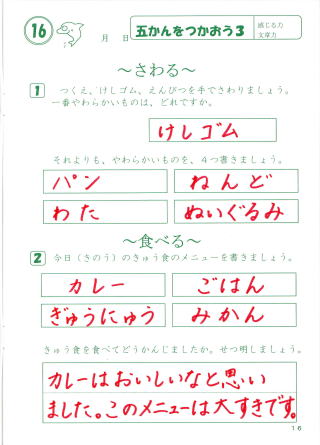 16
月 日
五かんをつかおう3
感じる力
文章力
～さわる～
1
つくえ、けしゴム、えんぴつを手でさわりましょう。
一番やわらかいものは、どれですか。
けしゴム
それよりも、やわらかいものを、4つ書きましょう。
パン ねんど
わた ぬいぐるみ
～食べる～
2
今日(きのう)のきゅう食のメニューを書きましょう。
カレー ごはん
ぎゅうにゅう みかん
きゅう食を食べてどうかんじましたか。せつ明しましょう。
カレーはおいしいなと思い
ました。このメニューは大すきです。
16